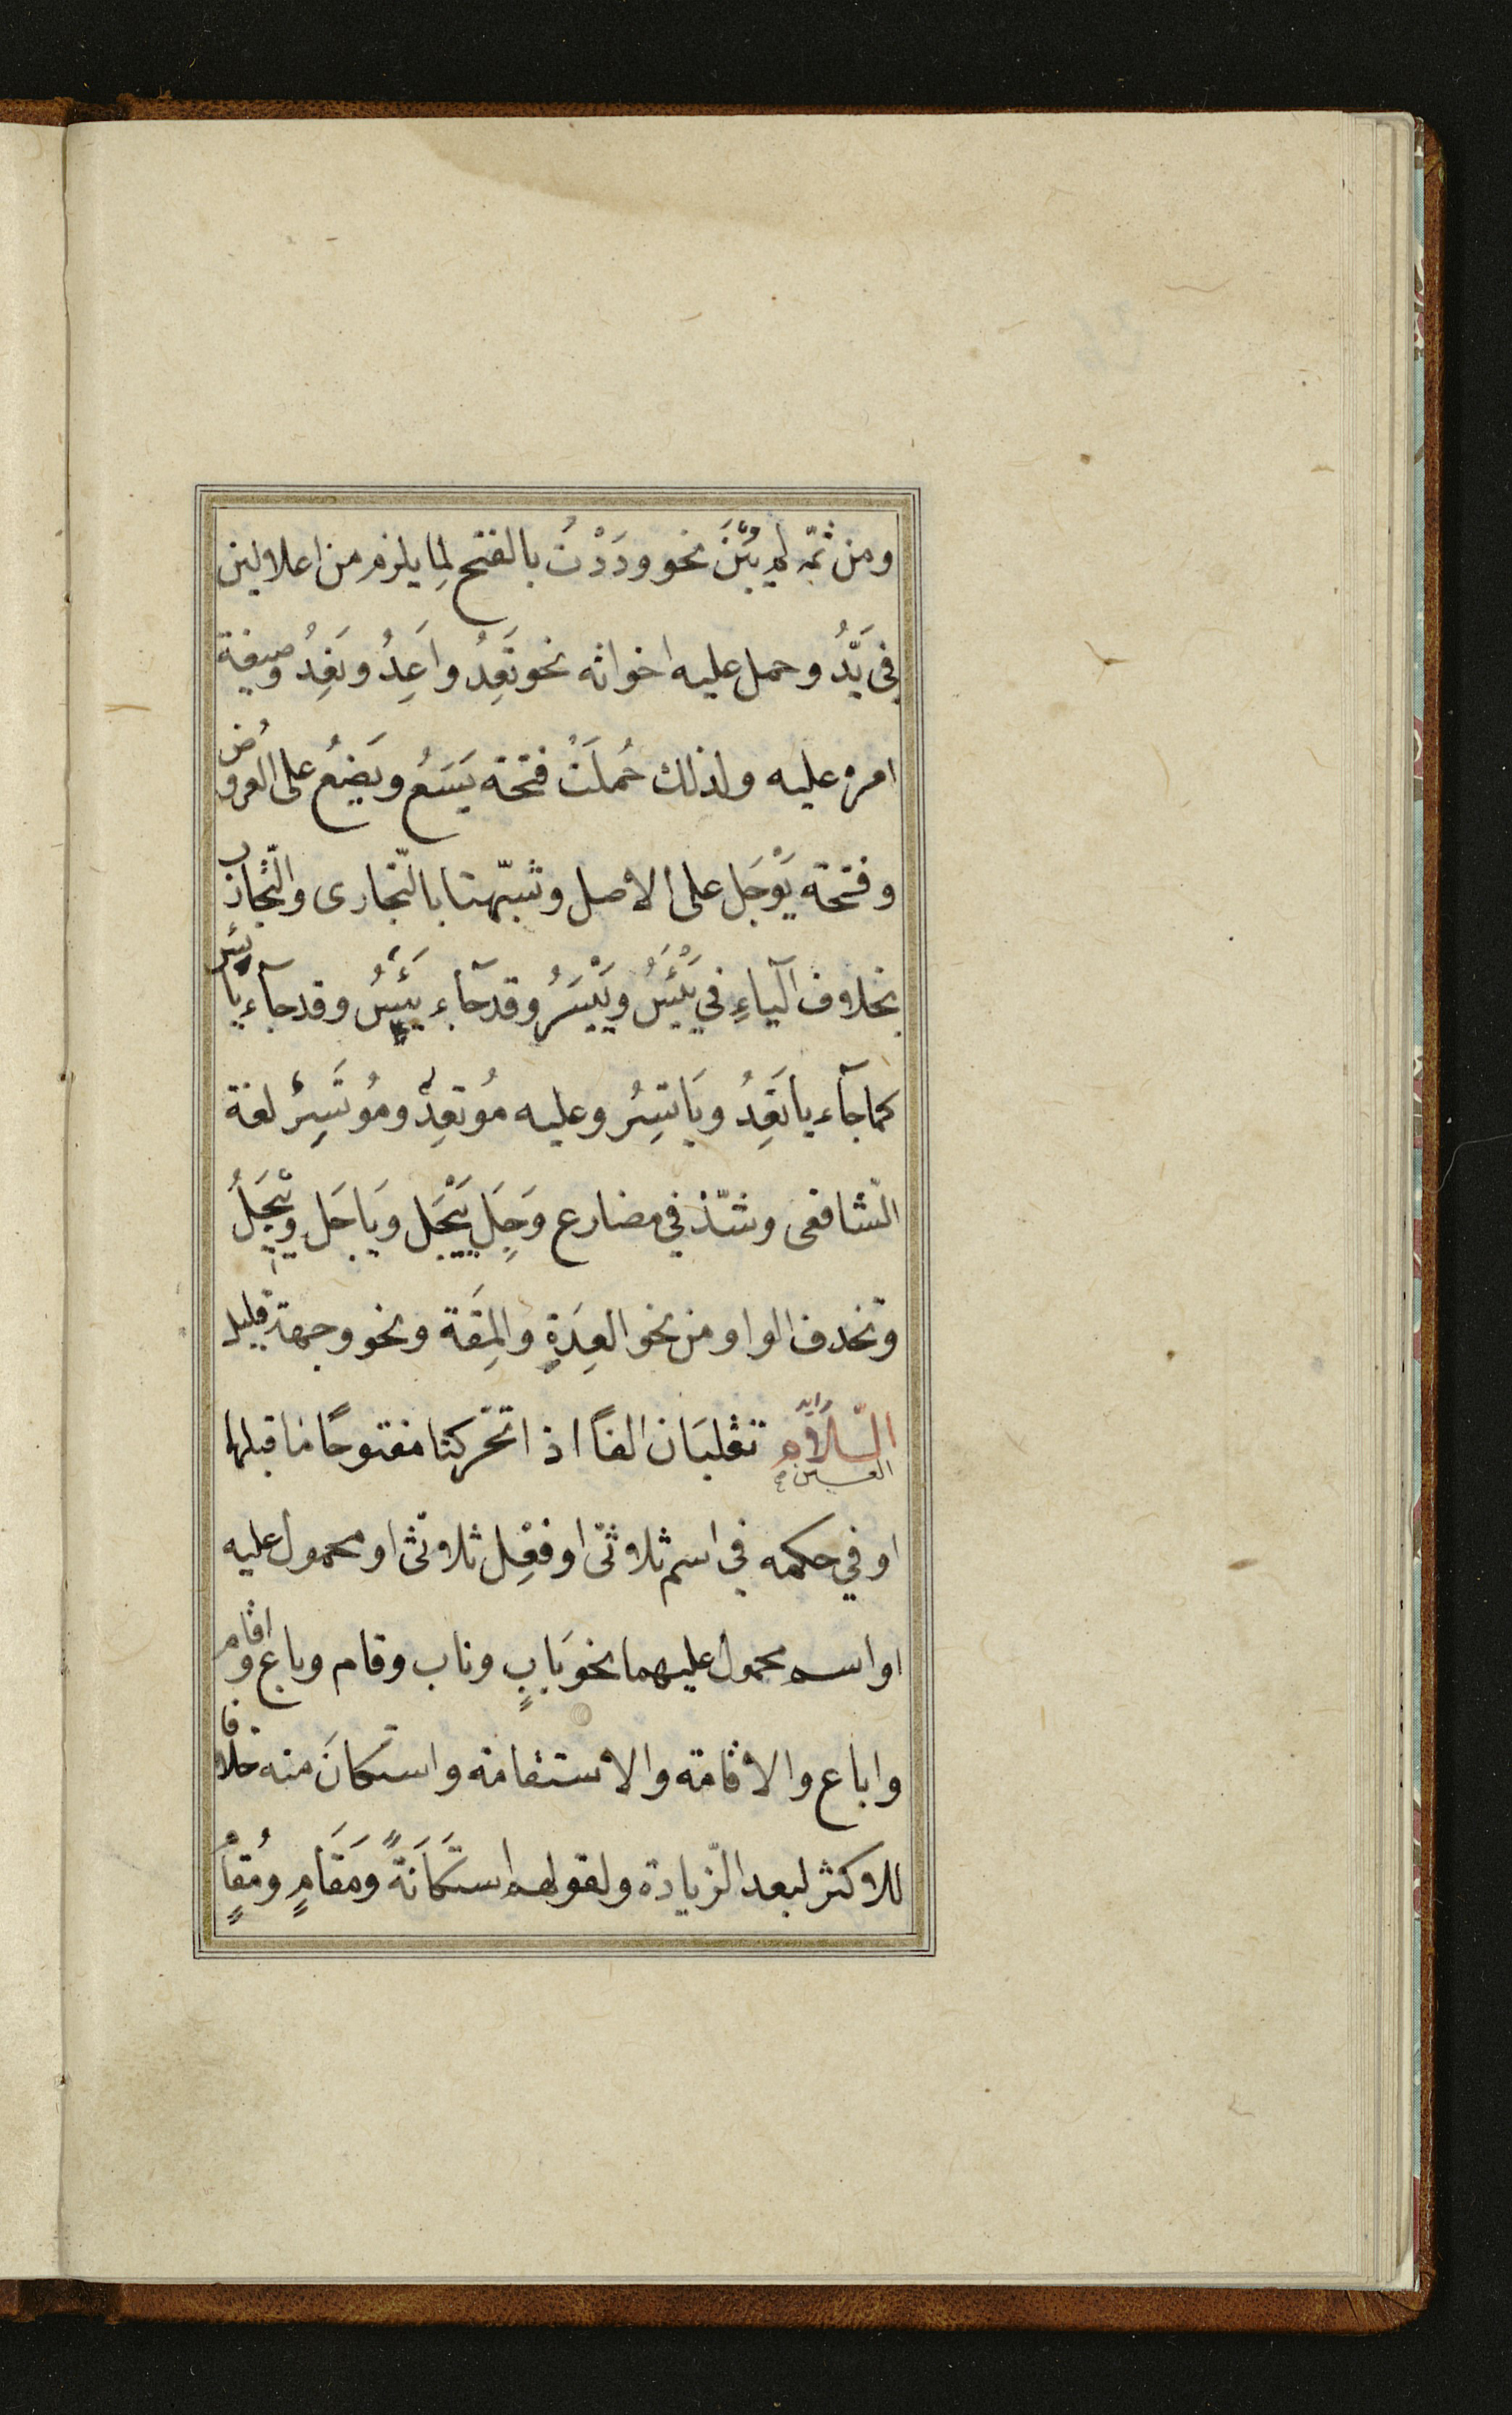 ومن ثمّه لم يُبْنَ نحو ودَدْتُ بالفتح لِما يلزم من اعلالين
في يَدُّ وحمل عليه اخواته نحو تَعِدُ واَعِدُ ونَعِدُ وصيغة
امره عليه ولذلك حُمِلَتْ فتحة يَسَعُ ويَضَعُ على العروض
وفتحة يَوْجَل على الاصل وشبّهتا بالتّجارى والتّجارب
بخلاف الياءِ في يَيْئَسُ ويَيْسَرُ وقد جآء يَئِسُ وقد جآء يائس
كما جآء ياتَعِدُ ويَاتسِرُ وعليه مُوتَعِدٌ ومُوتَسِرٌ لغة
الشّافعى وشذّ في مضارع وَجِلَ يَيْجَل ويَاجَل ويِيْجَلُ
وتحذف الواو من نحو العِدَةِ والمِقَة ونحو وجهة قليل
العين تقلبَان الفاً اذا تحّركتا مفتوحًا ما قبلها
او في حكمه في اسم ثلاثىّ او فعْل ثلاثىّ او محمول عليه
او اسم محمول عليهما نحو بَابٍ وناب وقام وباع واقام
واباع والاقامة والاستقامة واستكانَ منه خلافا
للاكثر لبعد الزّيادة ولقولهم استكَانَةً ومَقَامٍ ومُقامٍ